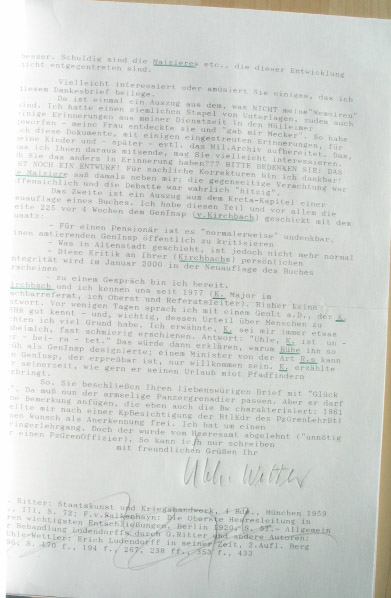 besser. Schuldig sind die Maizieres etc., die dieser Entwicklung
nicht entgegentreten sind.
Vielleicht interessiert oder amüsiert Sie einiges, das ich
diesem Dankesbrief beilege.
Da ist einmal ein Auszug aus dem, was NICHT meine "Memoiren"
sind. Ich hatte einen ziemlichen Stapel von Unterlagen, zudem auch
einige Erinnerungen aus meiner Dienstzeit in den Mülleimer
geworfen - meine Frau entdeckte sie und "gab mir Mecker". So habe
ich diese Dokumente, mit einigen eingestreuten Erinnerungen, für
meine Kinder und - später - evtl. das Mil.Archiv aufbereitet. Das,
was ich Ihnen daraus mitsende, mag Sie vielleicht interessieren.
Ob Sie das anders in Erinnerung haben??? BITTE BEDENKEN SIE: DAS
IST NOCH EIN ENTWURF! Für sachliche Korrekturen bin ich dankbar!
de Maizière saß damals neben mir; die gegenseitige Verachtung war
offensichlich und die Debatte war wahrlich "hitzig".
Das Zweite ist ein Auszug aus dem Kreta-Kapitel einer
Neuauflage eines Buches. Ich habe diesen Teil und vor allem die
Seite 225 vor 4 Wochen dem GenInsp (v.Kirchbach) geschickt mit dem
Zusatz:
- Für einen Pensionär ist es "normalerweise" undenkbar,
einen amtierenden GenInsp öffentlich zu kritisieren
- Was in Altenstadt geschieht, ist jedoch nicht mehr normal
- Diese Kritik an Ihrer (Kirchbachs) persönlichen
Integrität wird im Januar 2000 in der Neuauflage des Buches
erscheinen
- zu einem Gespräch bin ich bereit.
Kirchbach und ich kennen uns seit 1977 (K. Major im
Nachbarreferat, ich Oberst und Referatsleiter). Bisher keine
Antwort. Vor wenigen Tagen sprach ich mit einem GenLt a.D., der K.
sehr gut kennt - und, wichtig, dessen Urteil über Menschen zu
achten ich viel Grund habe. Ich erwähnte, K. sei mir immer etwas
unheimlich, fast schmierig erschienen. Antwort: "Uhle, K. ist un -
be - re - chen - bar." Das würde dann erklären, warum Rühe ihn so
früh als GenInsp designierte; einem Minister von der Art R.s kann
ein GenInsp, der erpreßbar ist, nur willkommen sein. K. erzählte
mir seinerzeit, wie gern er seinen Urlaub miot Pfadfindern
verbringt.
So. Sie beschließen Ihren liebenswürdigen Brief mit "Glück
ab". Da muß nun der armselige Panzergrenadier passen. Aber er darf
eine Bemerkung anfügen, die eben auch die Bw charakterisiert: 1961
stellte mir nach einer
einen Wunsch als Anerkennung frei. Ich bat um einen
Springerlehrgang. Doch der wurde vom Heeresamt abgelehnt ("unnötig
für einen PzGrenOffizier). So kann ich nur schreiben
mit freundlichen Grüßen Ihr
Uhle-Wettler
G. Ritter: Staatskunst und Kriegshandwerk, 4 Bde., München 1959
ff., III, S. 72; E.v.Falkenhayn: Die Oberste Heeresleitung in
ihren wichtigsten Entschließungen, Berlin 1920, S. 53.- Allgemein
zur Behandlung Ludendorffs durch G.Ritter und andere Autoren:
Uhle-Wettler: Erich Ludendorff in seiner Zeit, 2.Aufl. Berg
1996, S. 170 f., 194 f., 267, 238 ff., 353 f., 433